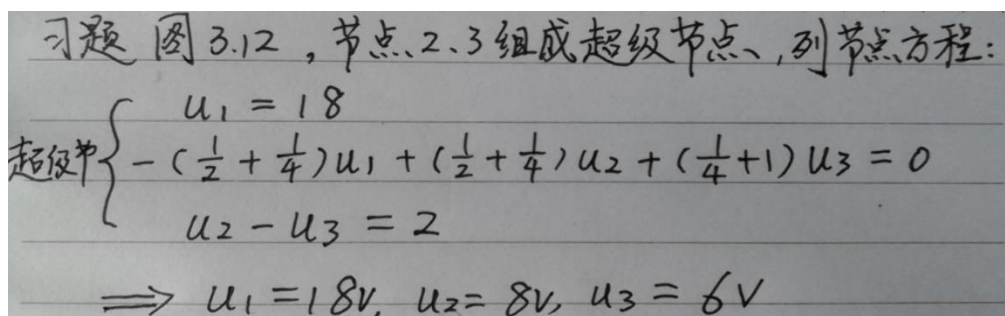 习题 图 3.12 ,节点、2、3组成超级节点、,列节点方程:
u₁ = 18
超级节 { - (1/2 + 1/4) u₁ + (1/2 + 1/4) u₂ + (1/4 + 1) u₃ = 0
u₂ - u₃ = 2
⟹ u₁ = 18V, u₂ = 8V, u₃ = 6V